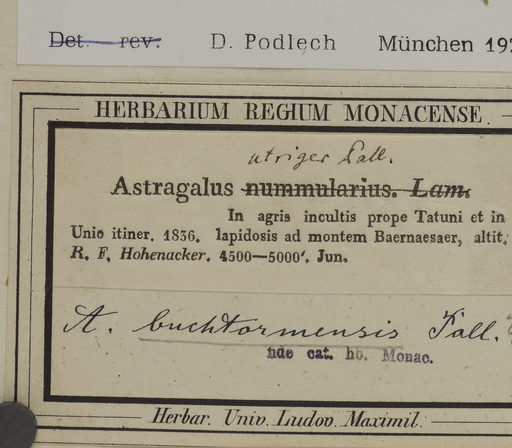 Det. rev. D. Podlech München 197
HERBARIUM REGIUM MONACENSE.
utriger Pall.
Astragalus nummularius. Lam.
In agris incultis prope Tatuni et in
Unio itiner. 1836. lapidosis ad montem Baernaesaer, altit.
R. F. Hohenacker. 4500—5000'. Jun.
A. buchtormensis Pall.
fide cat. hb. Monac.
Herbar. Univ. Ludov. Maximil.